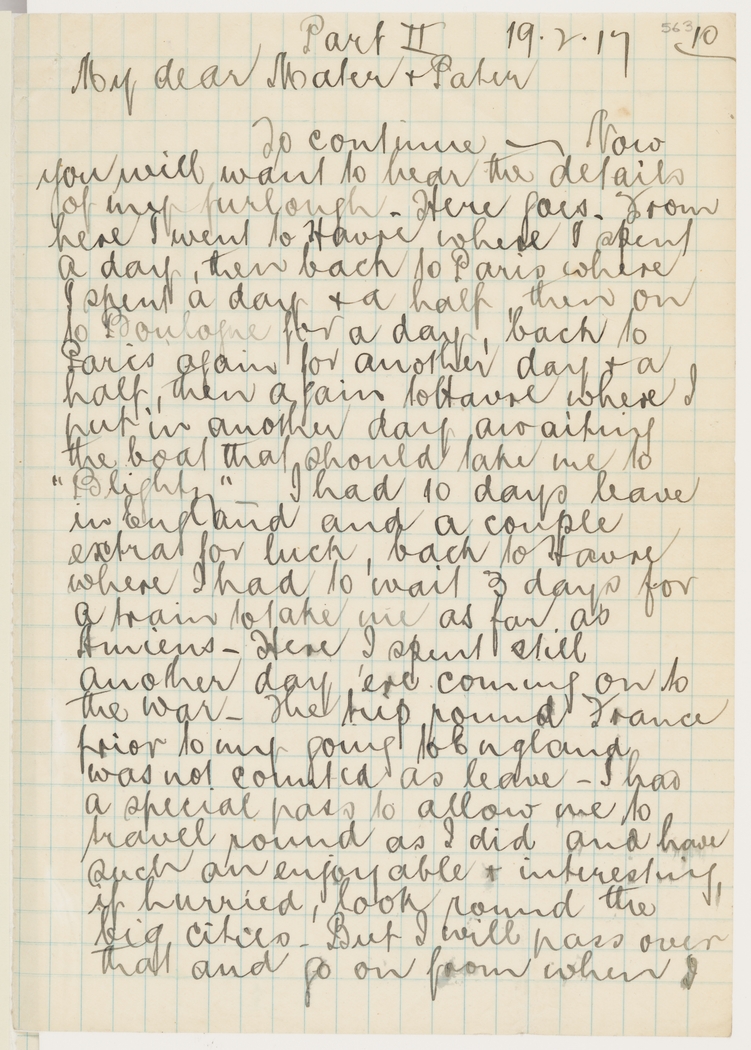 Part II 19.2.17 563 10
My dear Mater & Pater
To continue — Now
you will want to hear the details
of my furlough - Here goes - From
here I went to Havre where I spent
a day, then back to Paris where
I spent a day & a half, then on
to Boulogne for a day, back to
Paris again for another day & a
half, then again to Havre where I
put in another day awaiting
the boat that should take me to
"Blighty" I had 10 days leave
in England and a couple
extra for luck, back to Havre
where I had to wait 3 days for
a train to take me as far as
Amiens - Here I spent still
another day 'ere coming on to
the war - The trip round France
prior to my going to England
was not counted as leave - I had
a special pass to allow me to
travel round as I did and have
such an enjoyable & interesting,
if hurried, look round the
big cities - But I will pass over
that and go on from when I